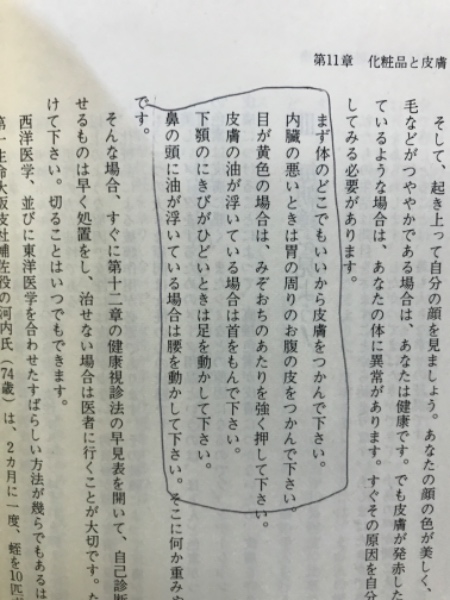 第11章　化粧品と皮膚
そして、起き上って自分の顔を見ましょう。あなたの顔の色が美しく、
毛などがつややかである場合は、あなたは健康です。でも皮膚が発赤した
ているような場合は、あなたの体に異常があります。すぐその原因を自分
してみる必要があります。
まず体のどこでもいいから皮膚をつかんで下さい。
内臓の悪いときは胃の周りのお腹の皮をつかんで下さい。
目が黄色の場合は、みぞおちのあたりを強く押して下さい。
皮膚の油が浮いている場合は首をもんで下さい。
下顎のにきびがひどいときは足を動かして下さい。
鼻の頭に油が浮いている場合は腰を動かして下さい。そこに何か重みや
です。
そんな場合、すぐに第十二章の健康視診法の早見表を開いて、自己診断
せるものは早く処置をし、治せない場合は医者に行くことが大切です。た
けて下さい。切ることはいつでもできます。
西洋医学、並びに東洋医学を合わせたすばらしい方法が幾らでもあるは
第一生命大阪支社補佐役の河内氏（74歳）は、2カ月に一度、蛭を10匹